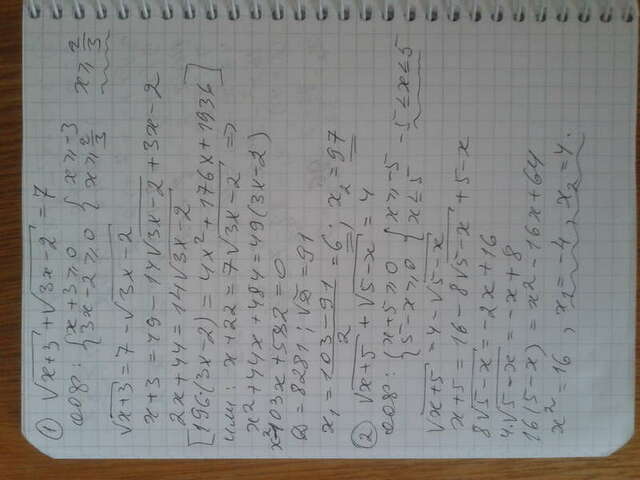 ① √(x+3) + √(3x-2) = 7
ООФ: { x+3 ≥ 0 { x ≥ -3 x ≥ 2/3
{ 3x-2 ≥ 0 { x ≥ 2/3
√(x+3) = 7 - √(3x-2)
x+3 = 49 - 14√(3x-2) + 3x - 2
2x + 44 = 14√(3x-2)
[196(3x-2) = 4x² + 176x + 1936]
или: x + 22 = 7√(3x-2) =>
x² + 44x + 484 = 49(3x-2)
x² - 103x + 582 = 0
D = 8281; √D = 91
x₁ = (103-91)/2 = 6; x₂ = 97
② √(x+5) + √(5-x) = 4
ООФ: { x+5 ≥ 0 { x ≥ -5 -5 ≤ x ≤ 5
{ 5-x ≥ 0 { x ≤ 5
√(x+5) = 4 - √(5-x)
x+5 = 16 - 8√(5-x) + 5 - x
8√(5-x) = -2x + 16
4√(5-x) = -x + 8
16(5-x) = x² - 16x + 64
x² = 16, x₁ = -4, x₂ = 4.